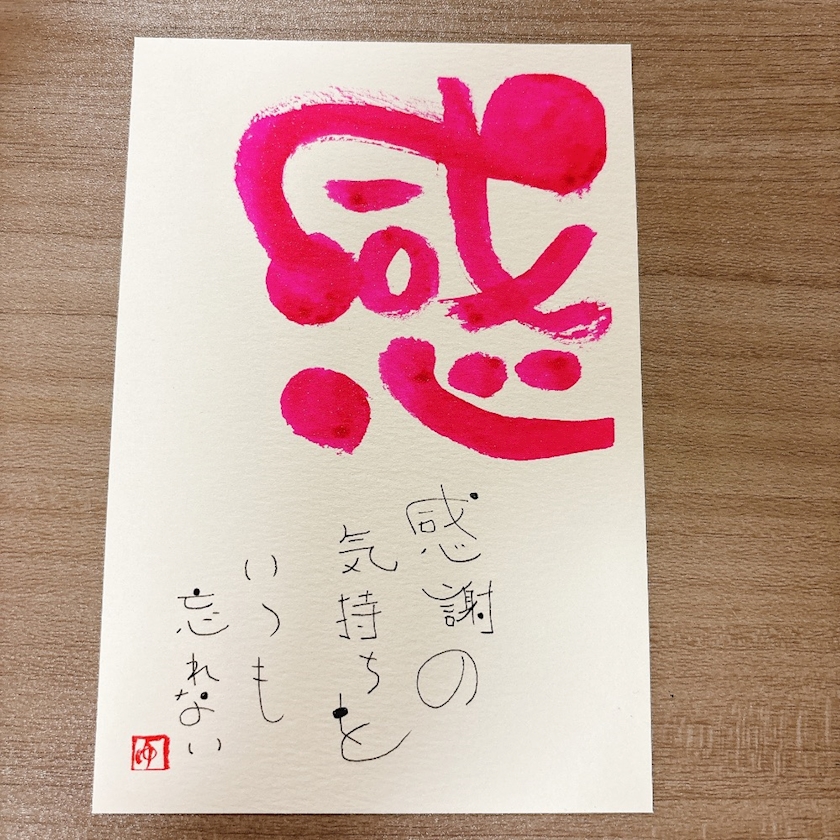 感
感謝の
気持ちを
いつも
忘れない
ゆ